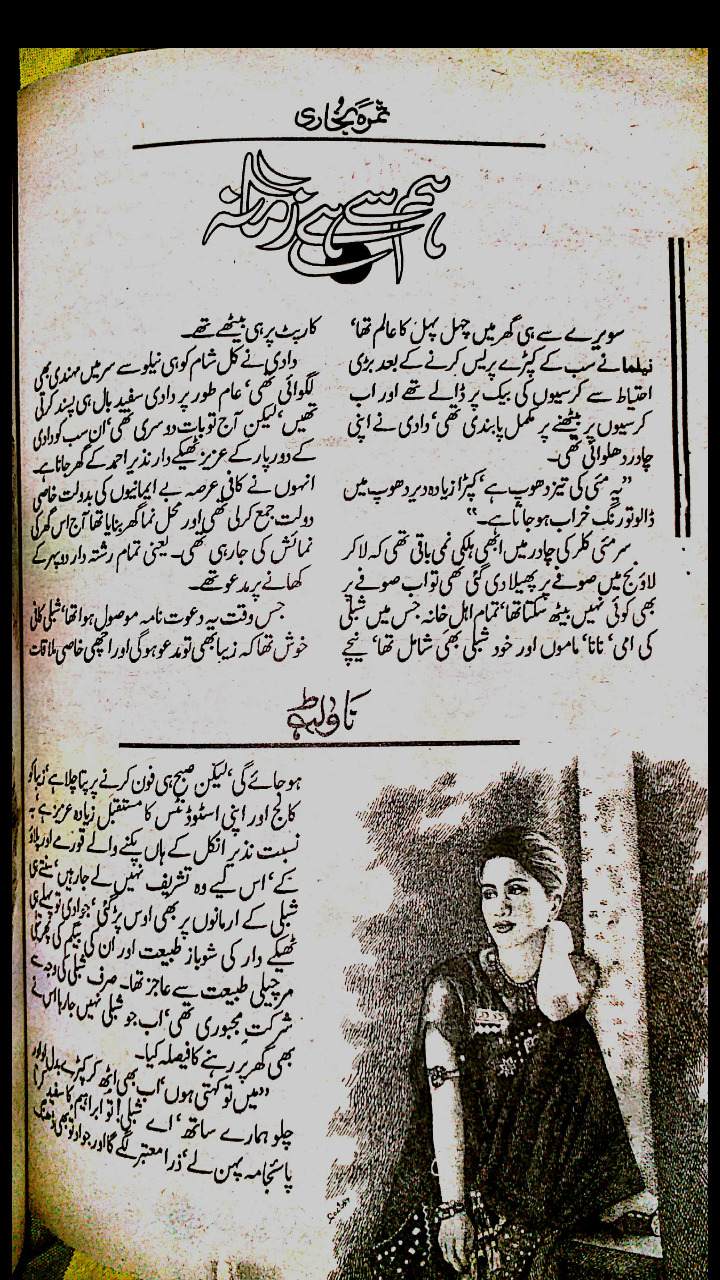 ثمرہ بخاری
ہم سے ہے زمانہ
سویرے سے ہی گھر میں چہل پہل کا عالم تھا‘
نیلما نے سب کے کپڑے پریس کرنے کے بعد بڑی
احتیاط سے کرسیوں کی بیک پر ڈالے تھے اور اب
کرسیوں پر بیٹھنے پر مکمل پابندی تھی‘ دادی نے اپنی
چادر دھلوائی تھی۔
”یہ مئی کی تیز دھوپ ہے‘ کپڑا زیادہ دیر دھوپ میں
ڈالو تو رنگ خراب ہو جاتا ہے۔“
سرمئی کلر کی چادر میں ابھی ہلکی نمی باقی تھی کہ لا کر
لاؤنج میں صوفے پر پھیلا دی گئی تھی تو اب صوفے پر
بھی کوئی نہیں بیٹھ سکتا تھا‘ تمام اہل خانہ جس میں شبلی
کی امی‘ نانا‘ ماموں اور خود شبلی بھی شامل تھا‘ نیچے
کارپٹ پر ہی بیٹھے تھے۔
دادی نے کل شام کو ہی نیلو سے سر میں مہندی بھی
لگوائی تھی‘ عام طور پر دادی سفید بال ہی پسند کرتی
تھیں‘ لیکن آج تو بات دوسری تھی‘ ان سب کو دادی
کے دور پار کے عزیز ٹھیکے دار نذیر احمد کے گھر جانا ہے۔
انہوں نے کافی عرصہ بے ایمانیوں کی بدولت خاصی
دولت جمع کر لی تھی اور محل نما گھر بنایا تھا آج اس گھر کی
نمائش کی جا رہی تھی۔ یعنی تمام رشتہ دار دوپہر کے
کھانے پر مدعو تھے۔
جس وقت یہ دعوت نامہ موصول ہوا تھا‘ شبلی کافی
خوش تھا کہ زیبا بھی تو مدعو ہو گی اور اچھی خاصی ملاقات
ناولٹ
ہو جائے گی‘ لیکن صبح ہی فون کرنے پر پتا چلا ہے‘ زیبا کو
کالج اور اپنی اسٹوڈنٹس کا مستقبل زیادہ عزیز ہے‘ بہ
نسبت نذیر انکل کے ہاں پکنے والے قورمے اور پلاؤ
کے‘ اس لیے وہ تشریف نہیں لے جا رہیں‘ سنتے ہی
شبلی کے ارمانوں پر بھی اوس پڑ گئی‘ جوادی تو پہلے ہی
ٹھیکے دار کی شوباز طبیعت اور ان کی بیگم کی
مرچیلی طبیعت سے عاجز تھا۔ صرف شبلی کی وجہ سے
شرکت مجبوری تھی‘ اب جو شبلی نہیں جا رہا اس نے
بھی گھر پر رہنے کا فیصلہ کیا۔
”میں تو کہتی ہوں‘ اب بھی اٹھ کر کپڑے بدل لو اور
چلو ہمارے ساتھ‘ اے شبلی! تو ابراہیم کا سفید کرتا
پائجامہ پہن لے‘ ذرا معتبر لگے گا اور جواد تو بھی ڈھنگ